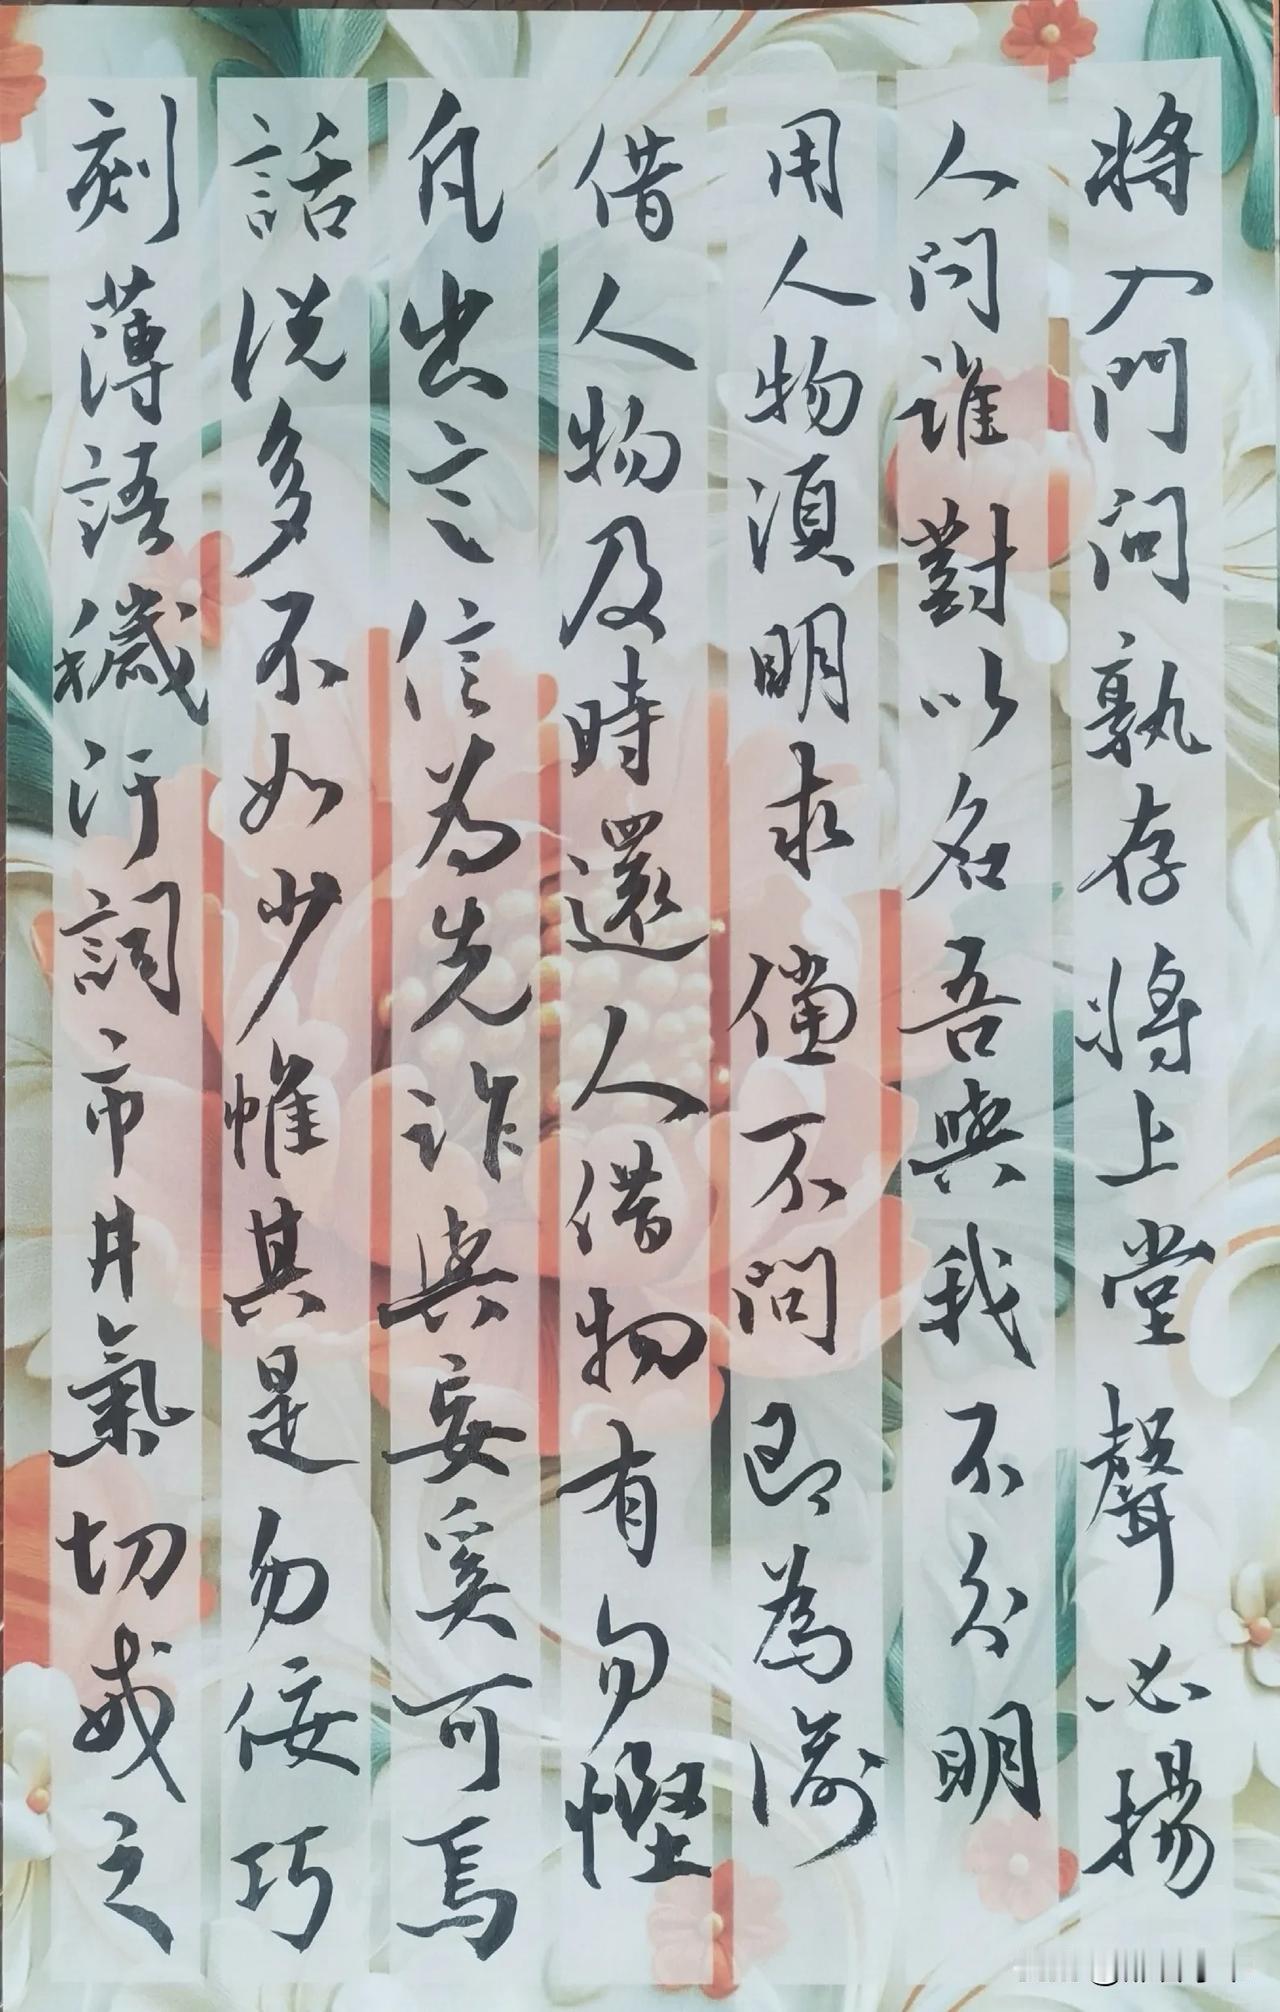 將入門問孰存將上堂聲必揚
人問誰對以名吾與我不分明
用人物須明求儻不問即為偷
借人物及時還人借物有勿慳
凡出言信為先詐與妄奚可焉
話說多不如少惟其是勿佞巧
刻薄語穢汙詞市井氣切戒之